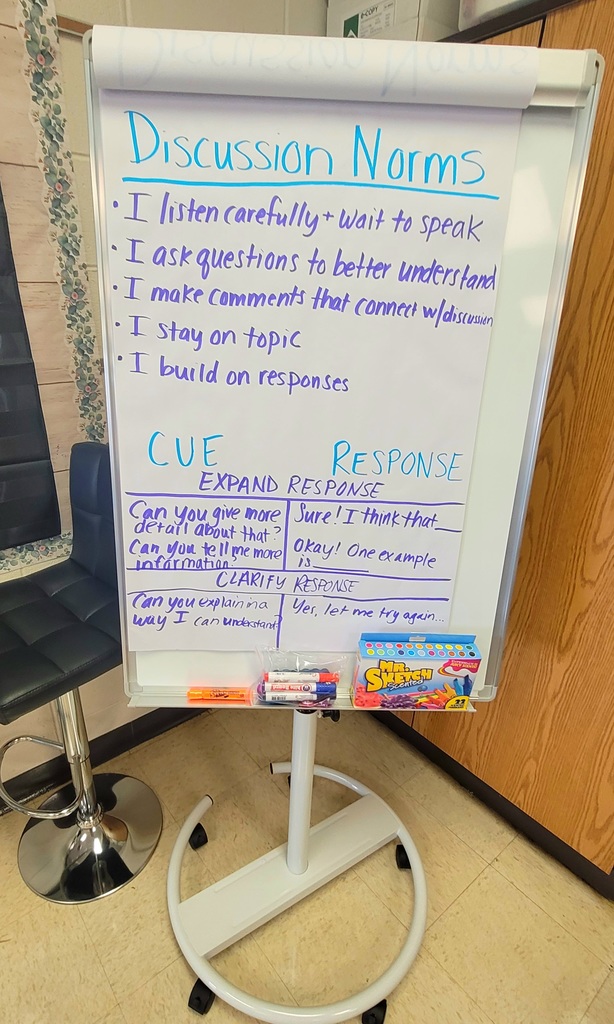 Discussion Norms
• I listen carefully + wait to speak
• I ask questions to better understand
• I make comments that connect w/discussion
• I stay on topic
• I build on responses
CUE RESPONSE
EXPAND RESPONSE
Can you give more
detail about that?
Can you tell me more
information?
Sure! I think that __
Okay! One example
is ______
CLARIFY RESPONSE
Can you explain in a
way I can understand?
Yes, let me try again...
MR.
SKETCH
scented
22